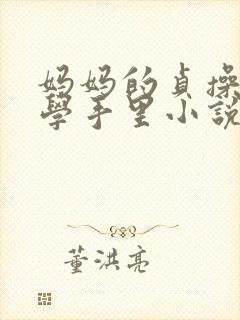 妈妈的貞操
學手里小說
董洪亮